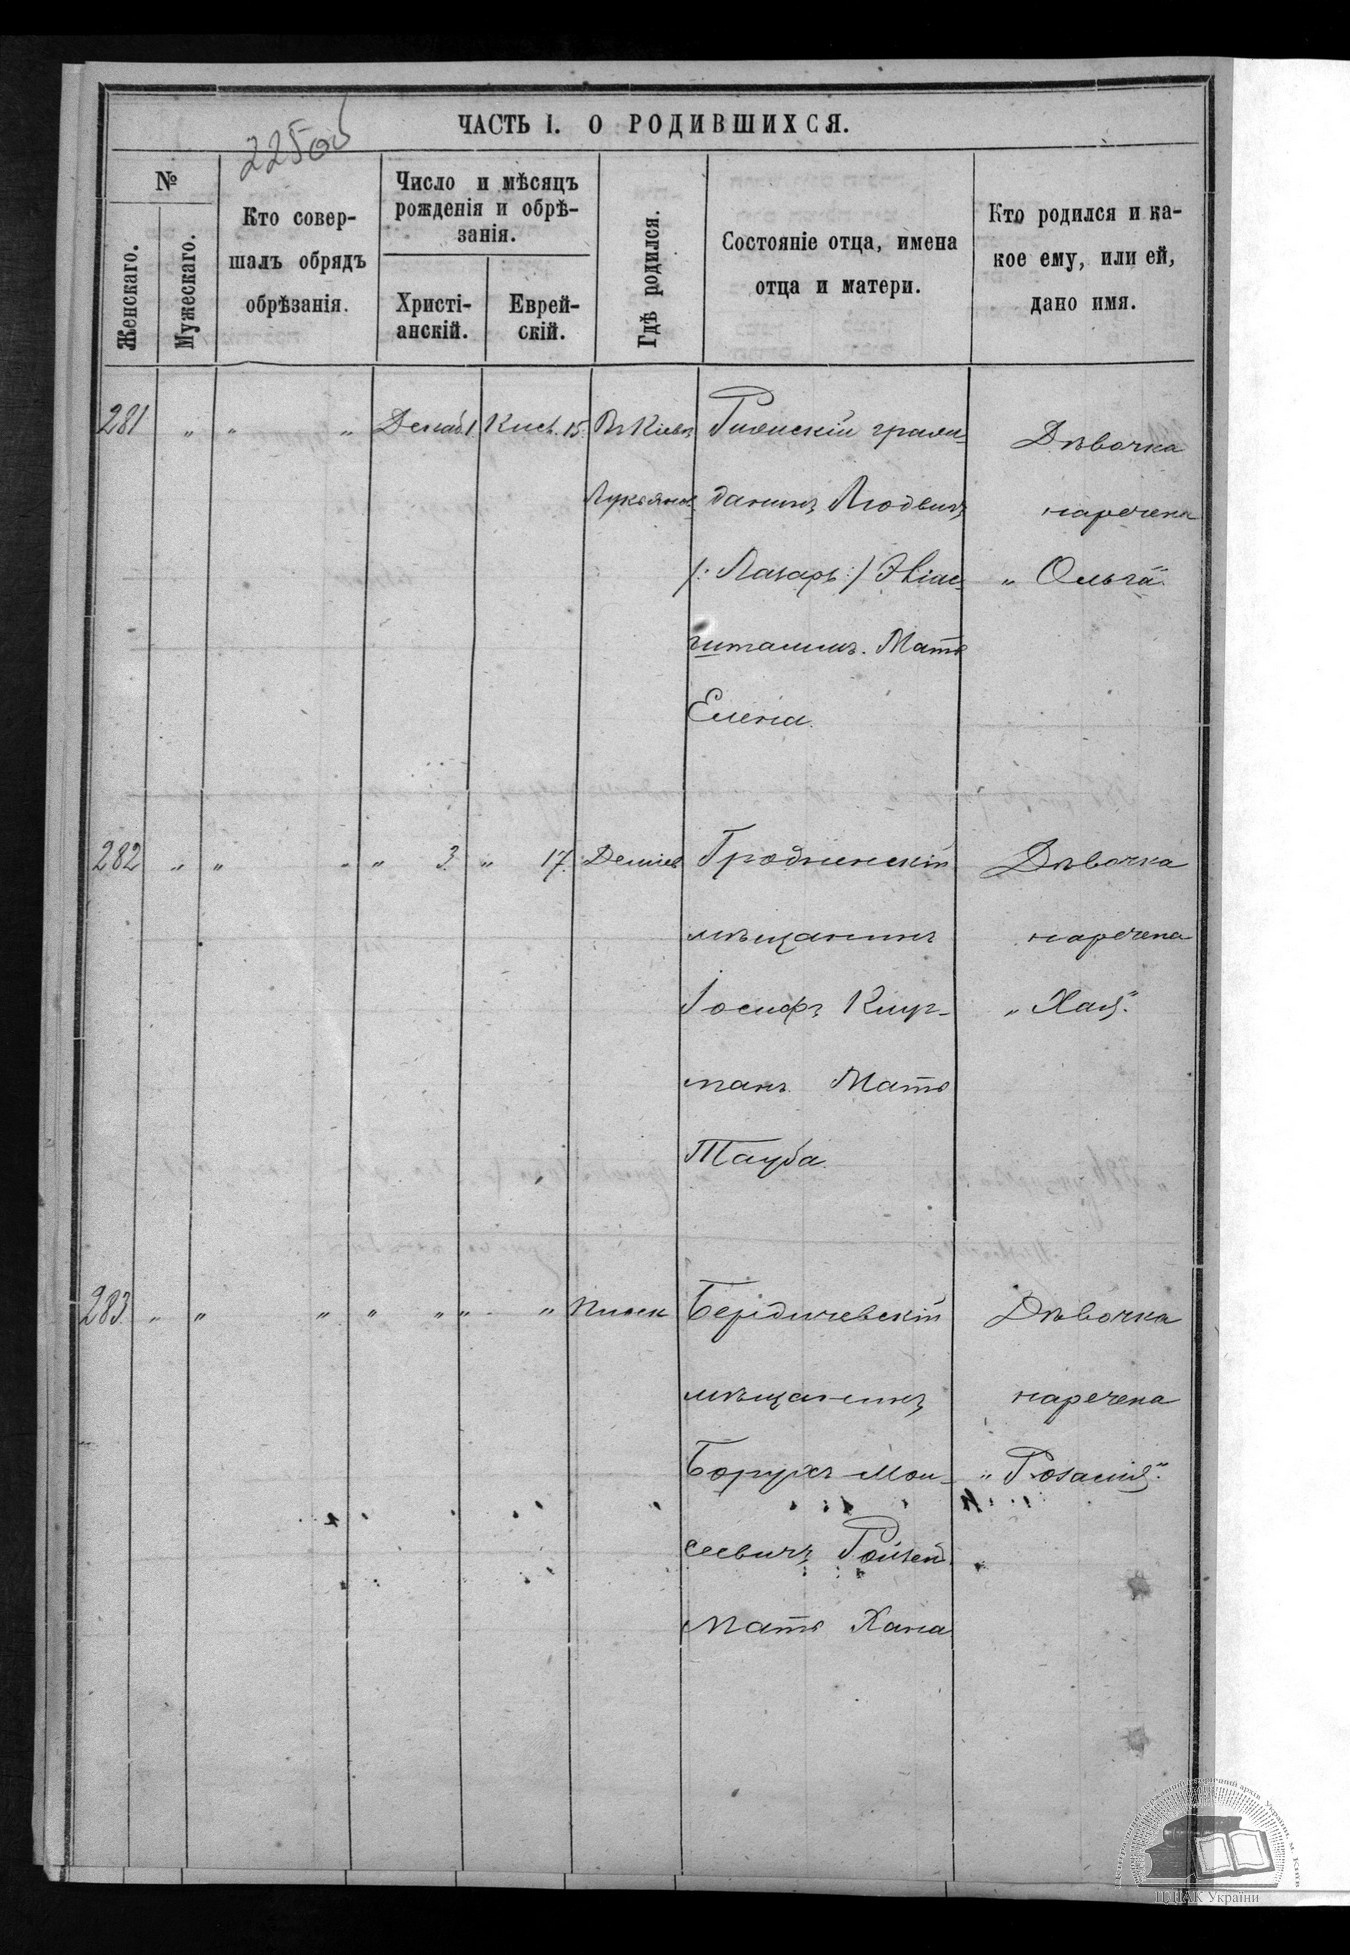 ЧАСТЬ I. О РОДИВШИХСЯ.
№
Женскаго.
Мужескаго.
Кто совер-
шалъ обрядъ
обрѣзанія.
Число и мѣсяцъ
рожденія и обрѣ-
занія.
Христі-
анскій.
Еврей-
скій.
Гдѣ родился.
Состояніе отца, имена
отца и матери.
Кто родился и ка-
кое ему, или ей,
дано имя.
281 " " " Декаб 1 Кисл. 15. Въ Кіевѣ
Лукьянов
данинъ Людвигъ
/: Лазарь :/
Мать
Елена.
Дѣвочка
наречена
„Ольга“
282 " " " " 3 " 17.
Гродненскій
мѣщанинъ
Іосифъ Клуг-
манъ. Мать
Тауба.
Дѣвочка
наречена
„Хая“.
283 " " " " " " "
Бердичевскій
мѣщанинъ
Борухъ Мои-
сеевичъ
Мать Хана
Дѣвочка
наречена
„Розалія“.
ЦДІАК України